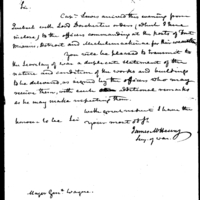 Sir,
Capt. Lewis arrived this morning from
Quebeck with Lord Dorchesters orders, (which I have
to the officers commanding at the posts of Fort
Miamis, Detroit and Michilimackinac for
You will be pleased to transmit to
the Secretary of war a duplicate statement of the
nature and condition of the works and buildings
to be delivered, as signed by the officers who may
receive them, with such additional remarks
as he may make respecting them.
With great respect I have the
honour to be Sir your most obt.
James McHenry
Secy of war.
Major Genl. Wayne.